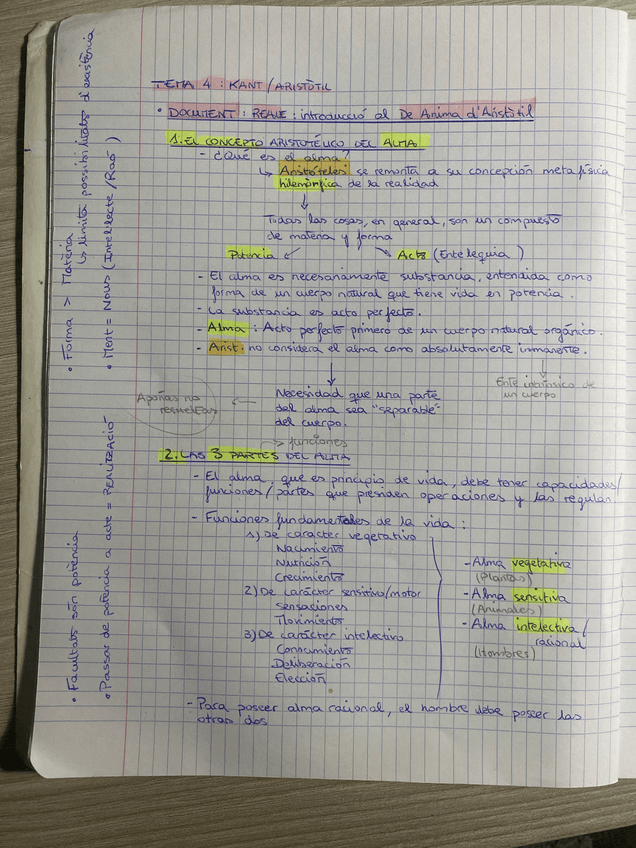 TEMA 4 : KANT / ARISTÒTIL
• DOCUMENT : REALE : introducció al De Anima d'Aristòtil
1. EL CONCEPTO ARISTOTÉLICO DEL ALMA
- ¿Qué es el alma?
↳ Aristóteles se remonta a su concepción metafísica
hilemórfica de la realidad
↓
Todas las cosas, en general, son un compuesto
de materia y forma
Potencia ↙ ↘ Acto (Entelequia)
- El alma es necesariamente substancia, entendida como
forma de un cuerpo natural que tiene vida en potencia.
- La substancia es acto perfecto.
- Alma : Acto perfecto primero de un cuerpo natural orgánico.
- Arist. no considera el alma como absolutamente inmanente.
Ente intrínsico de
un cuerpo
Aporías no
resueltas
← Necesidad que una parte
del alma sea "separable"
del cuerpo.
→ funciones
2. LAS 3 PARTES DEL ALMA
- El alma, que es principio de vida, debe tener capacidades/
funciones/partes que presiden operaciones y las regulan.
- Funciones fundamentales de la vida :
1) De caracter vegetativo
Nacimiento
Nutrición
Crecimiento
2) De carácter sensitivo/motor
sensaciones
Movimiento
3) De carácter intelectivo
Conocimiento
Deliberación
Elección
- Alma vegetativa
(Plantas)
- Alma sensitiva
(Animales)
- Alma intelectiva /
racional
(Hombres)
- Para poseer alma racional, el hombre debe poseer las
otras dos
• Forma > Matèria
↳ limita possibilitats d'existència
• Ment = Nous (Intel·lecte / Raó)
• Facultats són potència
• Passar de potència a acte = REALITZACIÓ